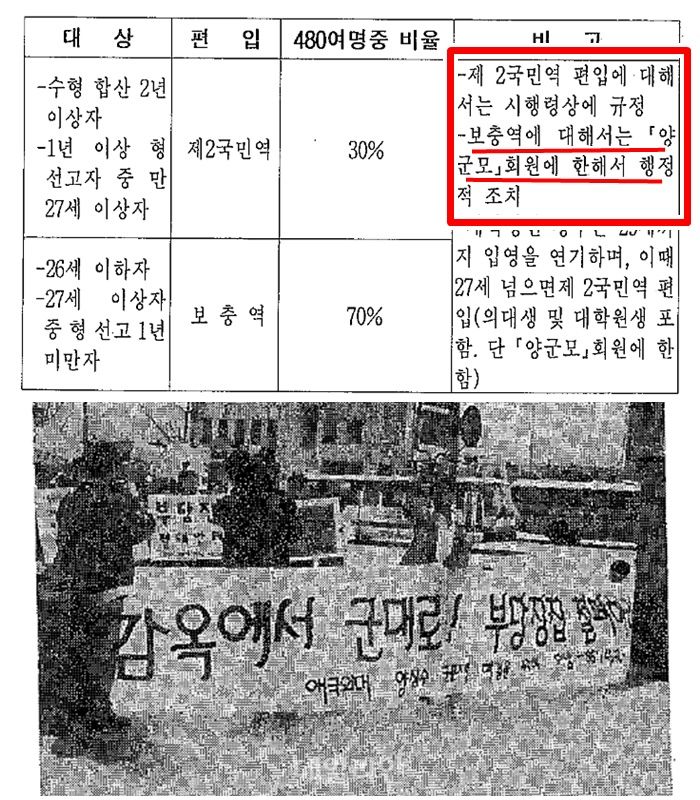 대 상
편 입
480여명중 비율
비 고
-수형 합산 2년
이상자
-1년 이상 형
선고자 중 만
27세 이상자
제2국민역
30%
-제 2국민역 편입에 대해
서는 시행령상에 규정
-보충역에 대해서는 「양
군모」회원에 한해서 행정
적 조치
-26세 이하자
-27세 이상자
중 형 선고 1년
미만자
보 충 역
70%
지 입영을 연기하며, 이때
27세 넘으면제 2국민역 편
입(의대생 및 대학원생 포
함. 단 「양군모」회원에 한
함)
부당징
감옥에서 군대로! 부당징집 철폐하라
애국외대